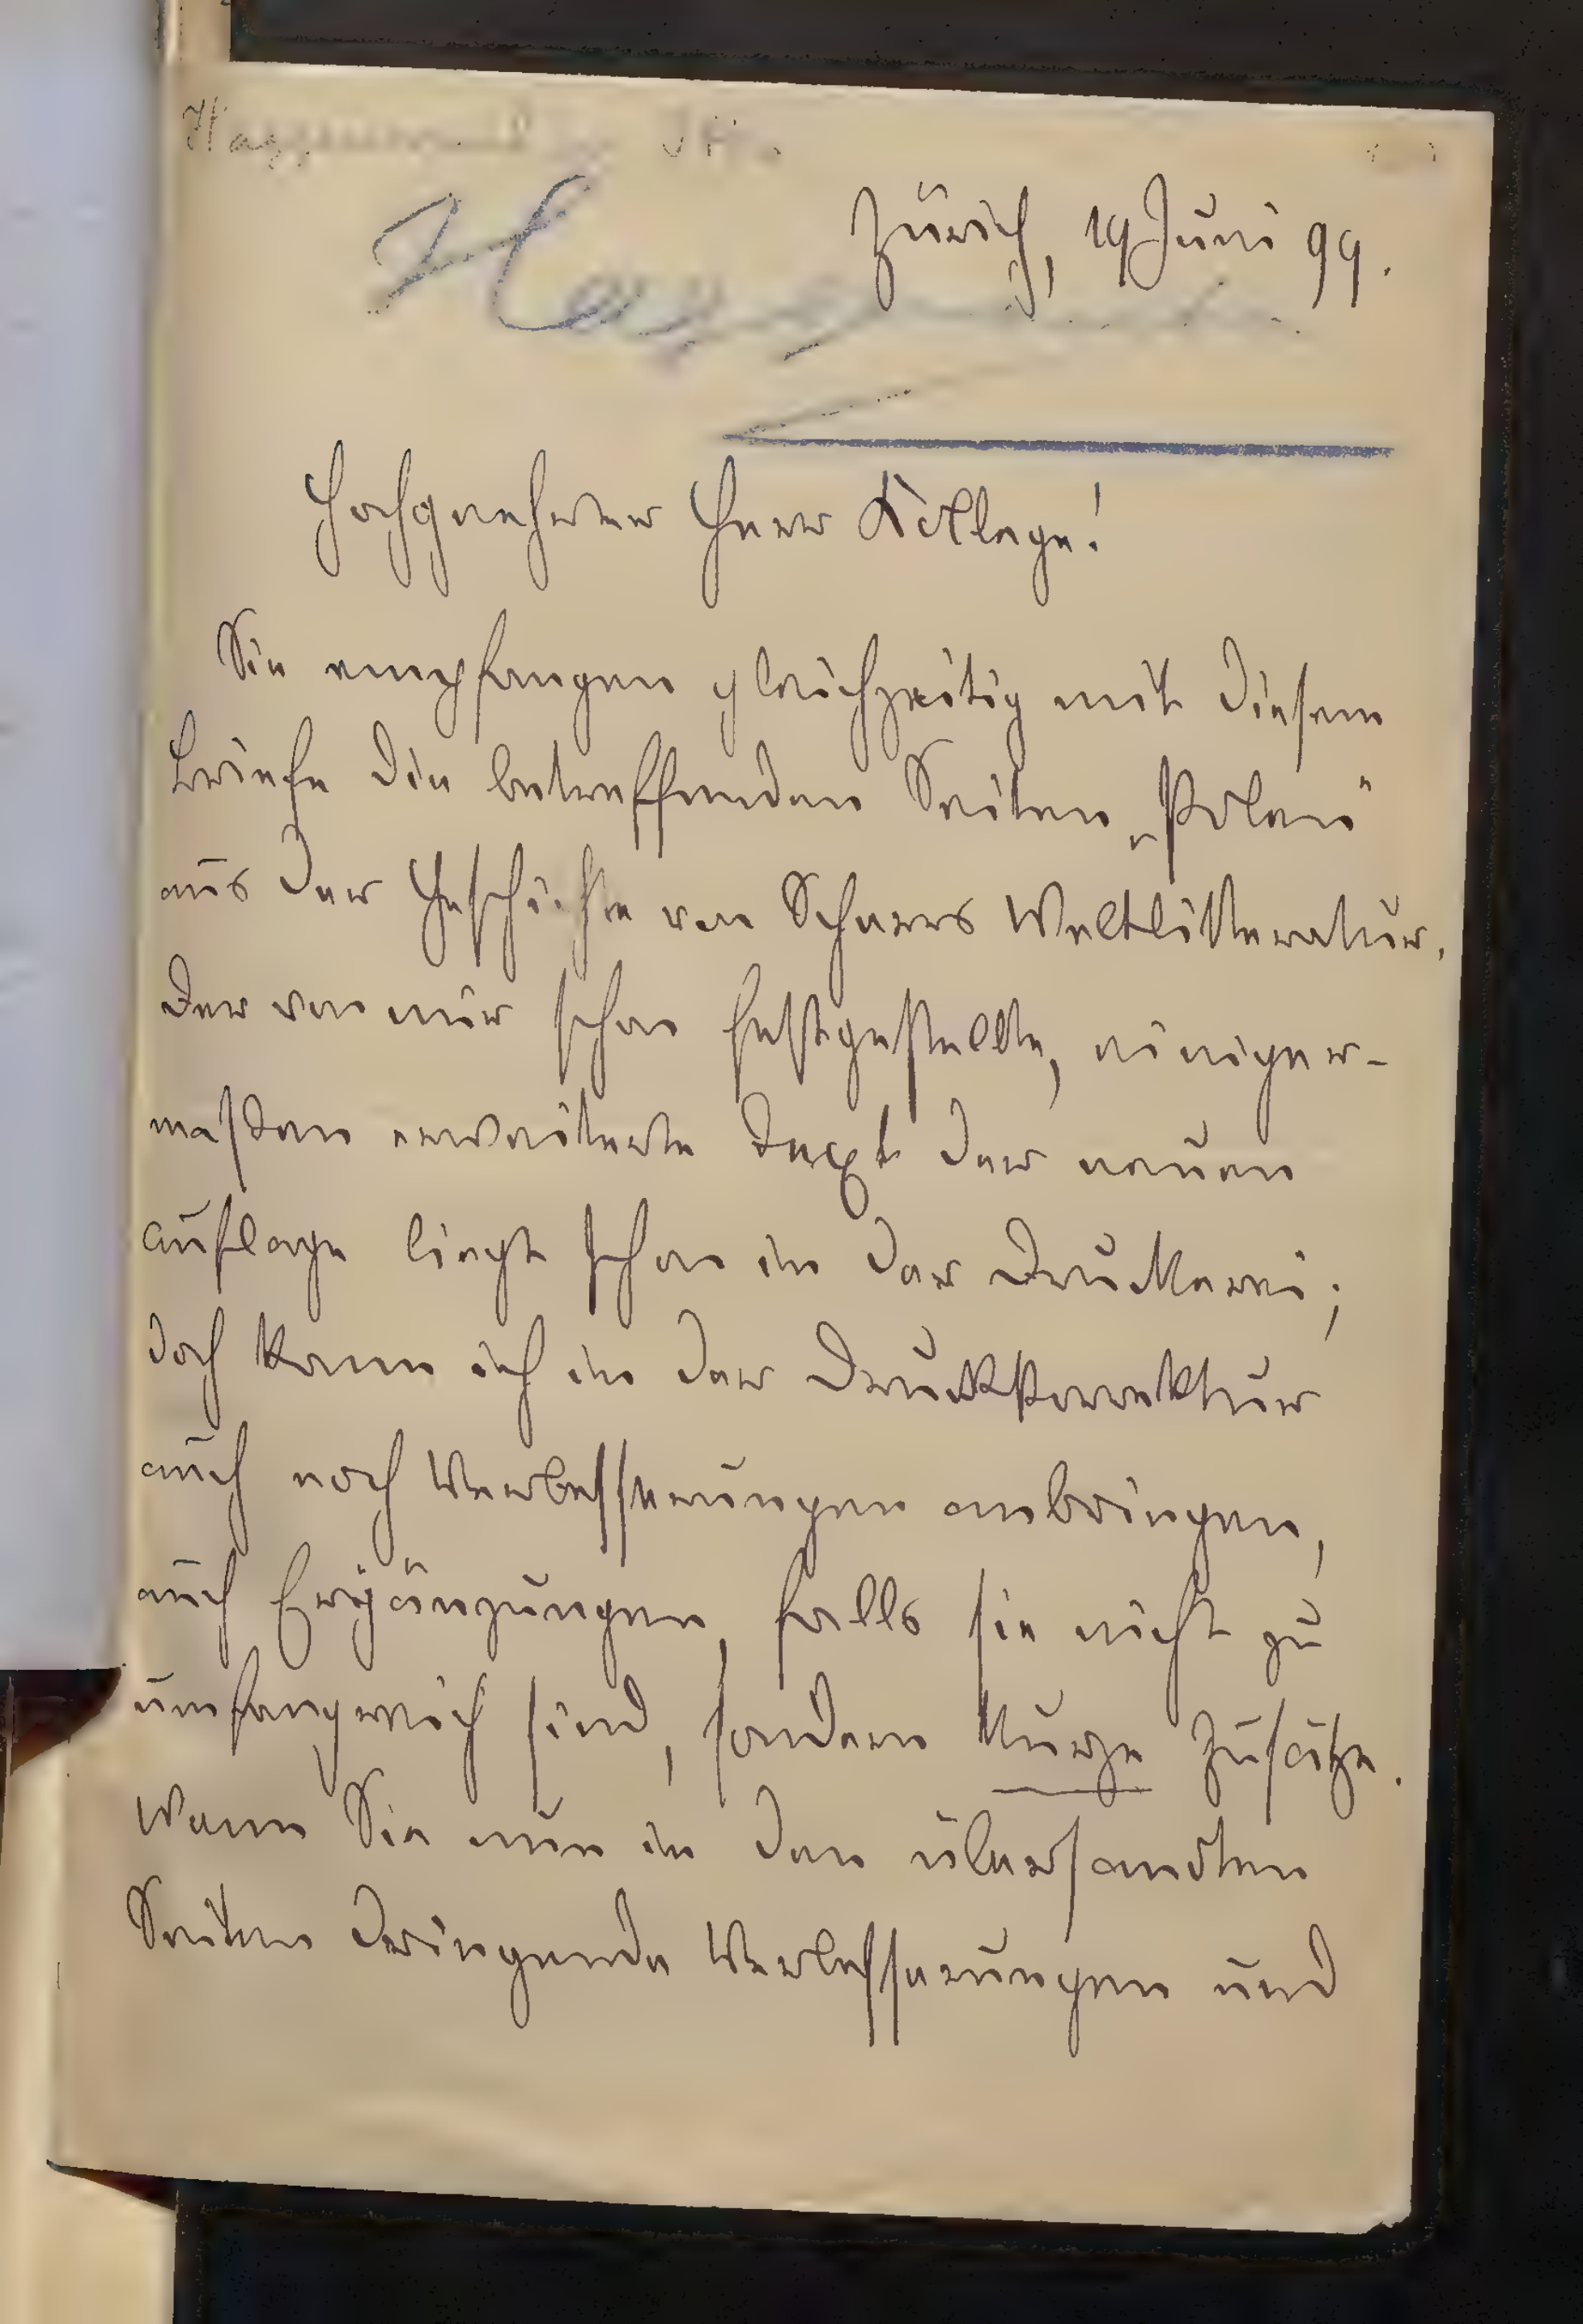 Zürich, 19 Juni 99.
Hochgeehrter Herr Kollege!
Sie empfangen gleichzeitig mit diesem
Briefe die betreffenden Seiten „Polen"
aus der Geschichte von Scherrs Weltlitteratur.
Der von mir schon festgestellte, einiger-
maßen erweiterte Text der neuen
Auflage liegt schon in der Druckerei;
doch kann ich in der Druckkorrektur
auch noch Verbesserungen anbringen,
auch Ergänzungen, falls sie nicht zu
umfangreich sind, sondern kurze Zusätze.
Wenn Sie nun in den übersandten
Seiten dringende Verbesserungen und